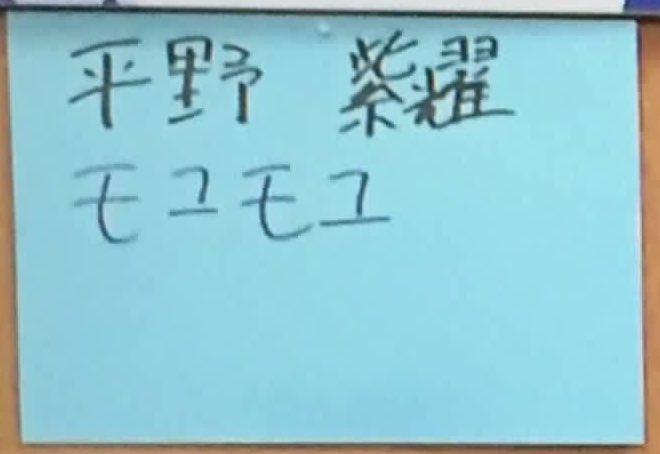 平野 紫耀
モユモユ